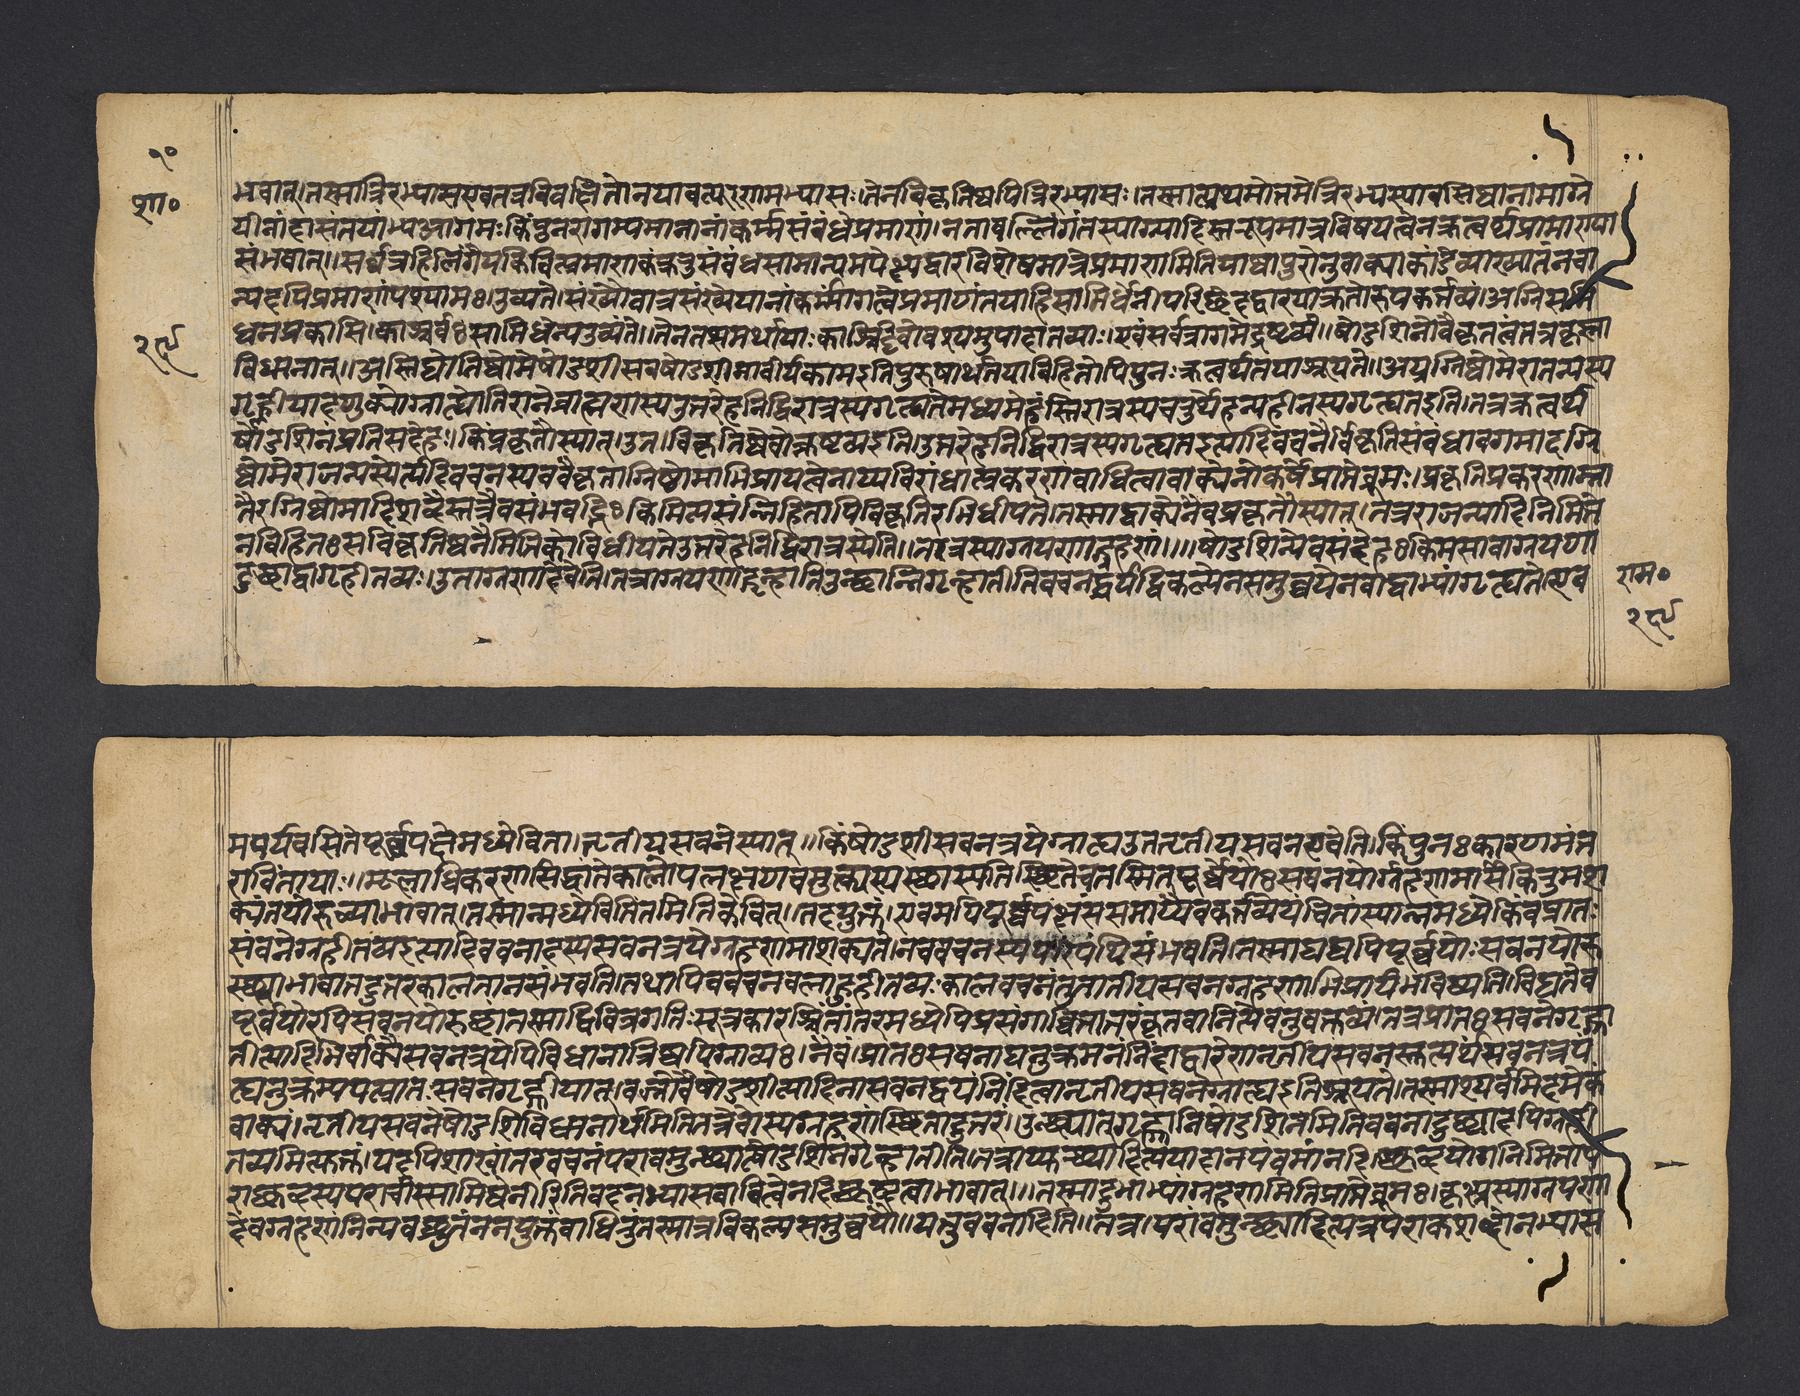 १०
शा०
भवात्।तस्मात्रिरभ्यासएवतत्रविवक्षितोनयावत्पूरणामभ्यासः।तेनविकृतिष्वपित्रिरभ्यासः।तस्मात्प्रथमोत्तमेत्रिरभ्यस्यावसिधानामाग्ने
यीनांहासंतयाभ्यआगमःकिंपुनरागम्यमानानांकर्म्मसंबंधेप्रमाणं।नतावल्लिंगंतस्याग्न्यादिस्वरूपमात्रविषयत्वेनक्रत्वर्थप्रामाण्या
संभवात्।सर्वत्रहिलिंगैयत्किंचित्प्रमाणकंक्रतुसंबंधसामान्यमपेक्ष्यद्वारविशेषमात्रेप्रमाणमितियाष्वापुरोनुवाक्याकांडेव्याख्यातंनचा
न्यदपिप्रमाणंपश्यामः।उच्यते।संख्यैवात्रसंख्येयानांकर्म्मांगत्वेप्रमाणंतयाहिसामिधेनीपरिछेदद्वारयाक्रतोरुपकर्त्तव्यं।अग्निसमिं
२९
धनप्रकाशि।काऋचःसामिधेन्यउच्यंते।तेनतत्समर्थायाःकाश्चिदृचोवश्यमुपादातव्याः।एवंसर्वत्रागमेद्रष्टव्यं।षोडशिनोवैकृतत्वंतत्रकृत्स्ना
विधानात्।अस्तिद्योतिष्टोमेषोडशीसचषोडशीनावीर्यकामइतिपुरुषार्थतयाविहितोपिपुनःक्रत्वर्थतयाश्रूयते।अप्यग्निष्टोमेराजन्यस्य
गृह्णीयादप्युक्थ्येग्राह्योतिरात्रेब्राह्मणस्यउत्तरेहनिद्विरात्रस्यगृह्यतेमध्यमेहंस्त्रिरात्रस्यचतुर्थेहन्यहीनस्यगृह्यतइति।तत्रक्रत्वर्थ
षोडशिनंप्रतिसंदेहः।किंप्रकृतौस्यात्।उत।विकृतिष्वेवोत्क्रष्टव्यइति।उत्तरेहनिद्विरात्रस्यगृह्यतइत्यादिवचनैर्विकृतिसंबंधावगमादग्नि
ष्टोमेराजन्यस्येत्यादिवचनस्यचवैकृताग्निष्टोमाभिप्रायत्वेनाप्यविरोधात्प्रकरणंबाधित्वावाक्येनोत्कर्षेप्राप्तेब्रूमः।प्रकृतिप्रकरणाम्ना
तैरग्निष्टोमादिशब्दैस्तत्रैवसंभवद्भिःकिमित्यसंनिहितापिविकृतिरभिधीयते।तस्माद्वाक्येनैवप्रकृतौस्यात्।तत्रराजन्यादिनिमित्ते
नविहितःसविकृतिष्वनैमित्तिकोविधीयतेउत्तरेहनिद्विरात्रस्येति।तत्रस्याग्रयणाद्ग्रहणं।।षोडशिन्येवसंदेहःकिमसावाग्रयणा
दुक्थ्याद्वागृहीतव्यः।उताग्रयणादेवेति।तत्राग्रयणाद्गृह्णातिउक्थ्यान्निगृह्णातीतिवचनद्वयाद्विकल्पेनसमुच्चयेनवाद्वाभ्यांगृह्यतेत्येव
राम०
२९
मपर्यवसितेपूर्वपक्षेमध्येचिंता।तृतीयसवनेस्यात्॥किंषोडशीसवनत्रयेग्राह्यउततृतीयसवनएवेति।किंपुनःकारणमंत
राचिंतायाः॥मूलाधिकरणसिद्धांतेकालोपलक्षणवमुक्थ्यस्यस्थास्यतिस्थितेचतस्मिन्पूर्वयोःसवनयोर्ग्रहणमासेकितुमश
क्यंतयोरुक्थ्याभावात्।तस्मान्मध्येचिंतितमितिकेचित्।तदयुक्तं।एवमपिपूर्वपक्षंससमाप्यैवकर्त्तव्येयंचिंतास्यान्नमध्येकिंचप्रातः
सवनेग्रहीतव्यइत्यादिवचनादस्यसवनत्रयेग्रहणमाशंक्यते।नचवचनस्यपरिपंथिसंभवति।तस्माद्यद्यपिपूर्वयोःसवनयोरु
क्थ्याभावात्तदुत्तरकालतानसंभवति।तथापिवचनबलाद्गृहीतव्यः।कालवचनंतुतार्तीयसवनग्रहणाभिप्रायंभविष्यति।विद्यतेच
पूर्वयोरपिसवनयोरुक्थ्यंतस्माद्विचित्रगतिःसूत्रकारश्चिंतांतरमध्येपिप्रसंगाच्चिंतांतरंकृतवानित्येवनुवक्तव्यं।तत्रप्रातःसवनेगृह्णा
तीत्यादिभिर्वाक्यैःसवनत्रयेपिविधानात्रिष्वपिग्राह्यः।नैवं।प्रातःसवनाद्यनुक्रमनंनिंदाद्वारेणतृतीयसवनस्तुत्यर्थंसवनत्रयं
ह्यनुक्रम्ययत्प्रातःसवनेगृह्णीयात्।वज्रोवैषोडशीत्यादिनासवनद्वयंनिंदित्वातृतीयसवनेग्राह्यइतिश्रूयते।तस्मात्सर्वमिदमेक
वाक्यं।तृतीयसवनेषोडशिविधानार्थमितितत्रैवास्यग्रहणंस्थितादुत्तरं।उक्थ्यात्तगृह्णातिषोडशिनमितिवचनादुक्थ्यादपिग्रही
तव्यमित्युक्तं।यदपिशाखांतरवचनंपरांचमुक्थ्यात्षोडशिनंगृह्णातीति।तत्राप्युक्थ्यादित्यपादानपंचमीनदिक्छब्दयोगनिमित्ताप
राक्छब्दस्यपराचीःसामिधेनीरितिवदनभ्यासवाचित्वेनदिक्छब्दत्वाभावात्।।तस्मादुभाभ्यांग्रहणमितिप्राप्तेब्रूमः।कृत्स्नस्याग्रयणा
देवग्रहणमित्येवश्रुतंनतत्युक्तंबाधितुंतस्मान्नविकल्पसमुच्चयौ।यत्तुवचनादिति।तन्न।परांचमुक्थ्यादित्यत्रपराक्शब्दोनभ्यास